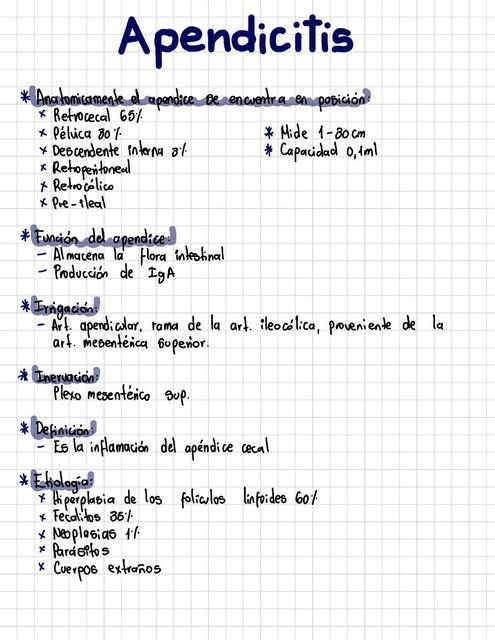 Apendicitis
* Anatomicamente el apendice se encuentra en posición:
x Retrocecal 65%
x Pélvica 30%
x Descendente interna 3%
x Retroperitoneal
x Retrocólico
x Pre-ileal
* Mide 1-30cm
* Capacidad 0,1ml
* Función del apendice:
- Almacena la flora intestinal
- Producción de IgA
* Irrigación:
- Art. apendicular, rama de la art. ileocólica, proveniente de la
art. mesentérica superior.
* Inervación:
Plexo mesentérico sup.
* Definición:
- Es la inflamación del apéndice cecal
* Etiología:
x Hiperplasia de los foliculos linfoides 60%
x Fecalitos 35%
x Neoplasias 1%
x Parásitos
x Cuerpos extraños